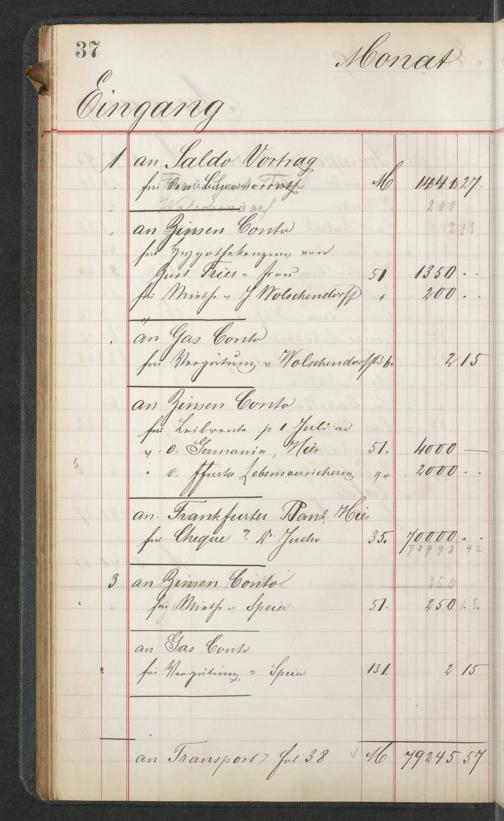 37
Monat
Eingang
1 an Saldo Vortrag
für M 1441 27
200
an Zinsen Conto
für Hypothekenzinsen von
Frau 51 1350 . .
für Miethe v Wolschendorff " 200 . .
an Gas Conto
für Vergütung v Wolschendorff 2 15
an Zinsen Conto
für Leibrente p 1 Juli
v. d. Germania, Hier 51. 4000 —
" d. Lebensversicherung " 2000 . .
an Frankfurter Bank Hier
für Cheque 35. 70000 . .
78993 42
3 an Zinsen Conto
für Miethe v Speier 51. 250
an Gas Conto
für Vergütung v Speier 131. 2 15
an Transport fol 38 M 79245 57